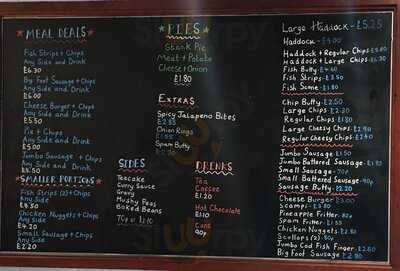 MEAL DEALS
Fish Strips + Chips
Any Side and Drink
£6.30
Big Foot Sausage + Chips
Any Side and Drink
£6.00
Cheese Burger + Chips
Any Side and Drink
£5.50
Pie + Chips
Any Side and Drink
£5.00
Jumbo Sausage + Chips
Any Side and Drink
£5.50
SMALLER PORTIONS
Fish Strips (2) + Chips
Any Side
Chicken Nuggets + Chips
Any Side
£4.20
Small Sausage + Chips
Any Side
PIES
Steak Pie
Meat + Potato
Cheese + Onion
£1.80
EXTRAS
Spicy Jalapeno Bites
Onion Rings
Spam Butty
SIDES
Teacake
Curry Sauce
Gravy
Mushy Peas
Baked Beans
70p or £1.10
DRINKS
Tea
Coffee
£1.20
Hot Chocolate
£1.10
Cans
90p
Large Haddock - £5.25
Haddock - £4.00
Haddock + Regular Chips
Haddock + Large Chips
Fish Butty - £4.60
Fish Strips - £2.50
Fish Scone - £1.80
Chip Butty - £2.50
Large Chips - £2.20
Regular Chips £1.80
Large Cheesy Chips
Regular Cheesy Chips
Jumbo Sausage £1.50
Jumbo Battered Sausage
Small Sausage - 70p
Small Battered Sausage - 90p
Sausage Butty - £2.20
Cheese Burger £3.00
Scampi
Pineapple Fritter
Spam Fritter
Chicken Nuggets
Scallops (2)
Jumbo Cod Fish Finger
Big Foot Sausage